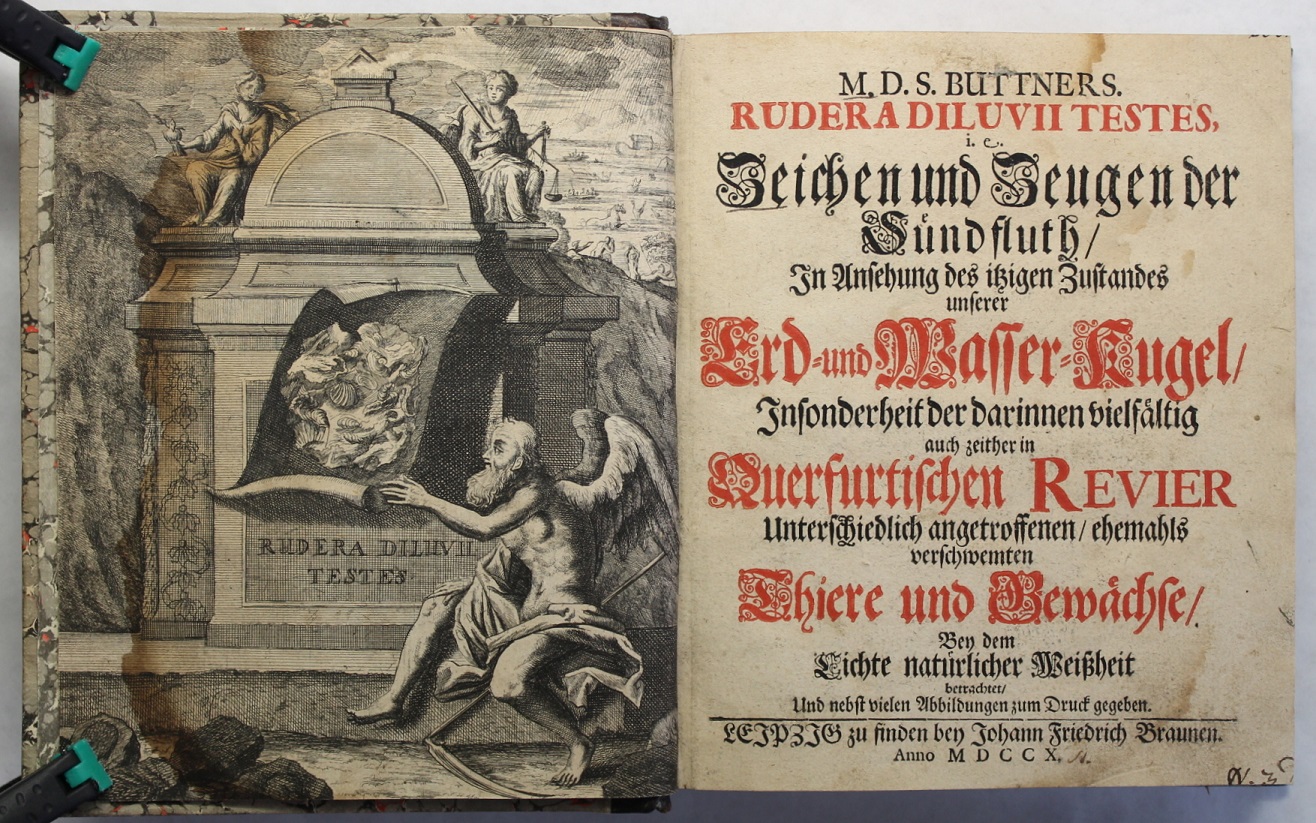 RUDERA DILUVII
TESTES
M. D. S. BUTTNERS.
RUDERA DILUVII TESTES,
i. e.
Zeichen und Zeugen der
Sündfluth/
In Ansehung des itzigen Zustandes
unserer
Erd-und Wasser-Kugel/
Insonderheit der darinnen vielfältig
auch zeither in
Querfurtischen REVIER
Unterschiedlich angetroffenen/ ehemahls
verschwemten
Thiere und Gewächse/
Bey dem
Lichte natürlicher Weißheit
betrachtet/
Und nebst vielen Abbildungen zum Druck gegeben.
LEIPZIG zu finden bey Johann Friedrich Braunen.
Anno M D C C X.